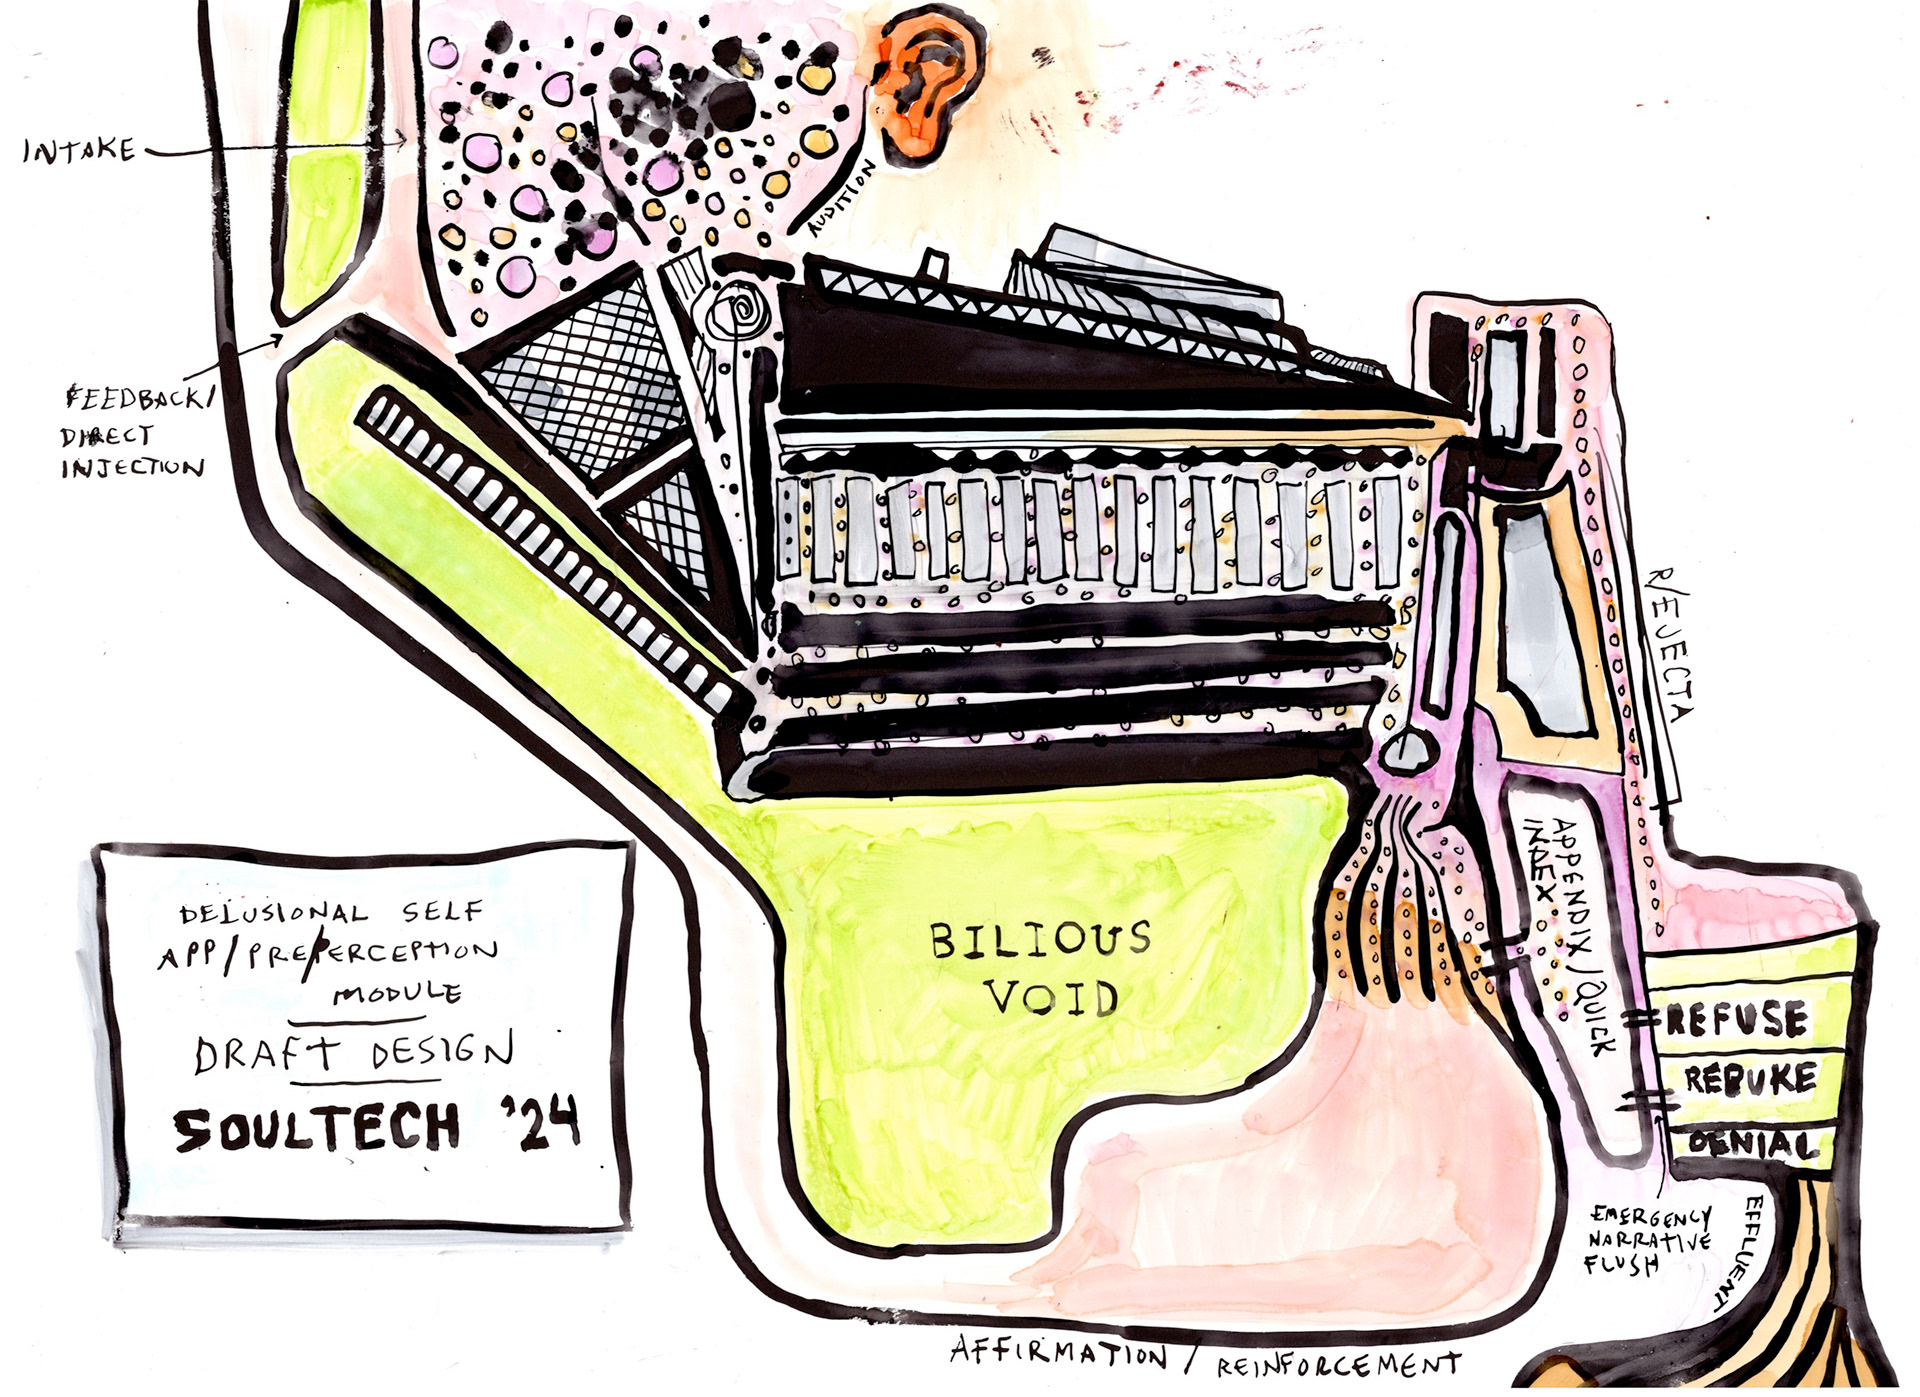 INTAKE
AUDITION
FEEDBACK/
DIRECT
INJECTION
R/EJECTA
APPENDIX/QUICK
INDEX
BILIOUS
VOID
REFUSE
REBUKE
DENIAL
DELUSIONAL SELF
APP/PRE/PERCEPTION
MODULE
DRAFT DESIGN
SOULTECH '24
EMERGENCY
NARRATIVE
FLUSH
EFFLUENT
AFFIRMATION / REINFORCEMENT